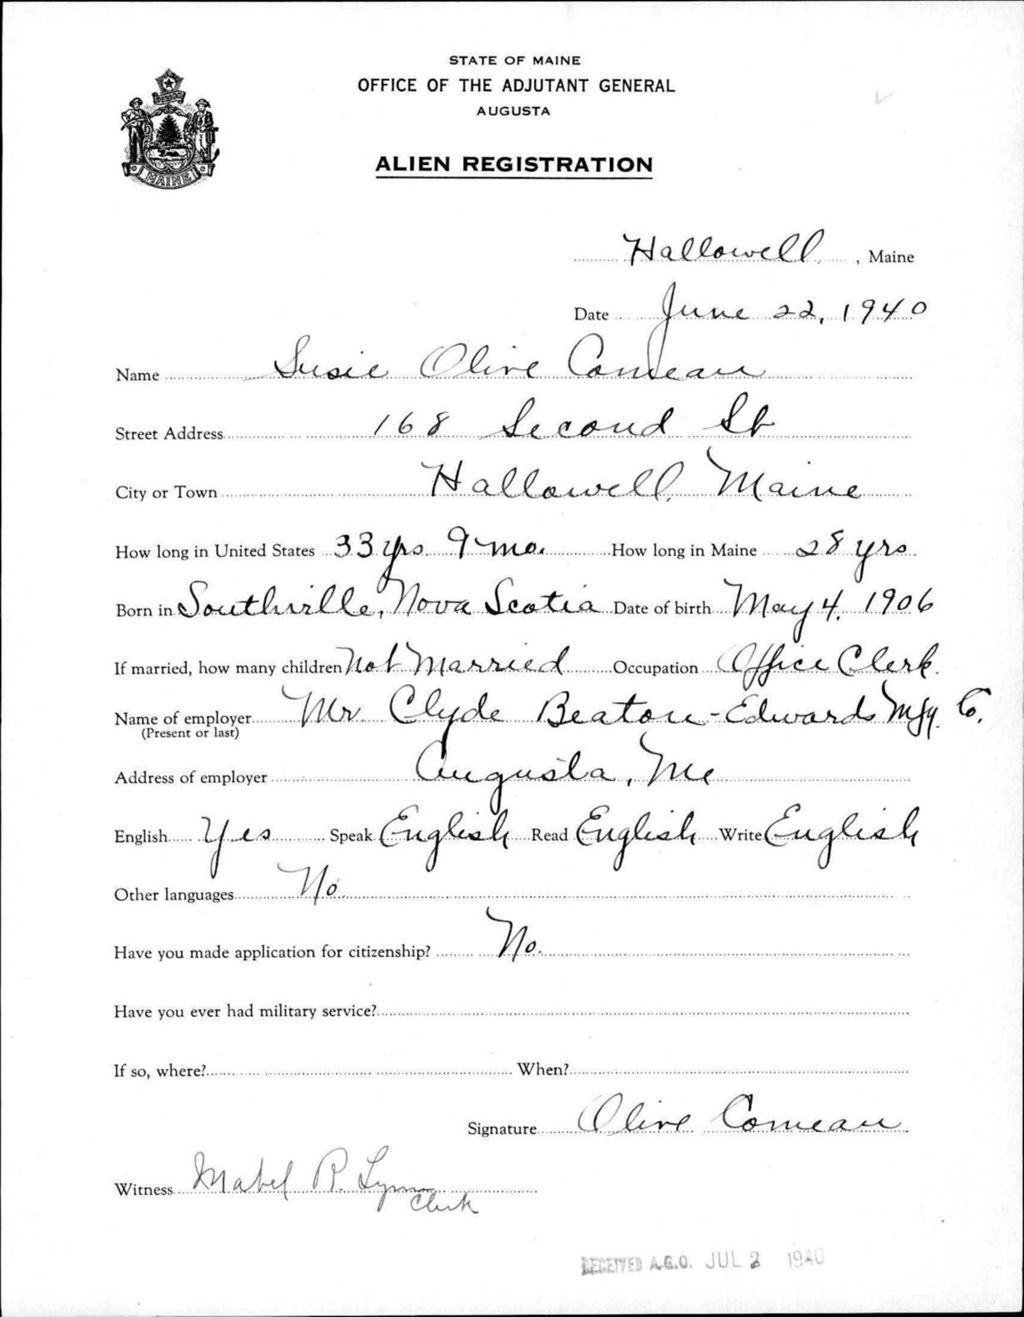 STATE OF MAINE
OFFICE OF THE ADJUTANT GENERAL
AUGUSTA
ALIEN REGISTRATION
MAINE
Hallowell, Maine
Date June 22, 1940
Name Susie Olive Comeau
Street Address 168 Second St
City or Town Hallowell, Maine
How long in United States 33 yrs 9 mo. How long in Maine 28 yrs
Born in Southville, Nova Scotia Date of birth May 4, 1906
If married, how many children Not Married Occupation Office Clerk.
Name of employer Mr. Clyde Beaton - Edwards Mfg. Co.
(Present or last)
Address of employer Augusta, Me
English Yes Speak English Read English Write English
Other languages No
Have you made application for citizenship? No.
Have you ever had military service?
If so, where? When?
Signature Olive Comeau
Witness Mabel R. Lyman
Clerk
RECEIVED A.G.O. JUL 2 1940